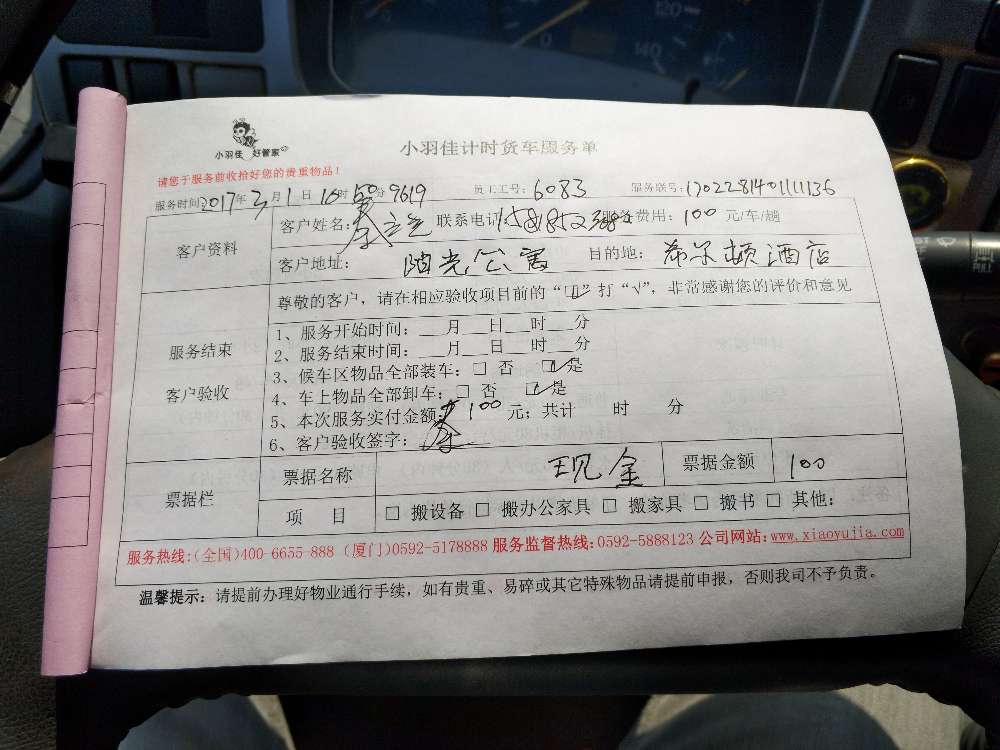 小羽佳 好管家
小羽佳计时货车服务单
请您于服务前收拾好您的贵重物品!
服务时间:2017年3月1日10时50分 9619 员工工号:6083 服务联号:1702281401111136
客户资料
客户姓名: 联系电话: 服务费用:100元/车/趟
客户地址:阳光公寓 目的地:希尔顿酒店
服务结束
客户验收
尊敬的客户,请在相应验收项目前的“□”打“√”,非常感谢您的评价和意见
1、服务开始时间:___月___日___时___分
2、服务结束时间:___月___日___时___分
3、候车区物品全部装车:□ 否 ☑是
4、车上物品全部卸车:□ 否 ☑是
5、本次服务实付金额:100元;共计 时 分
6、客户验收签字:
票据栏
票据名称 现金 票据金额 100
项 目 □ 搬设备 □ 搬办公家具 □ 搬家具 □ 搬书 □ 其他:
服务热线:(全国)400-6655-888 (厦门)0592-5178888 服务监督热线:0592-5888123 公司网站:www.xiaoyujia.com
温馨提示:请提前办理好物业通行手续,如有贵重、易碎或其它特殊物品请提前申报,否则我司不予负责。
120
0
140